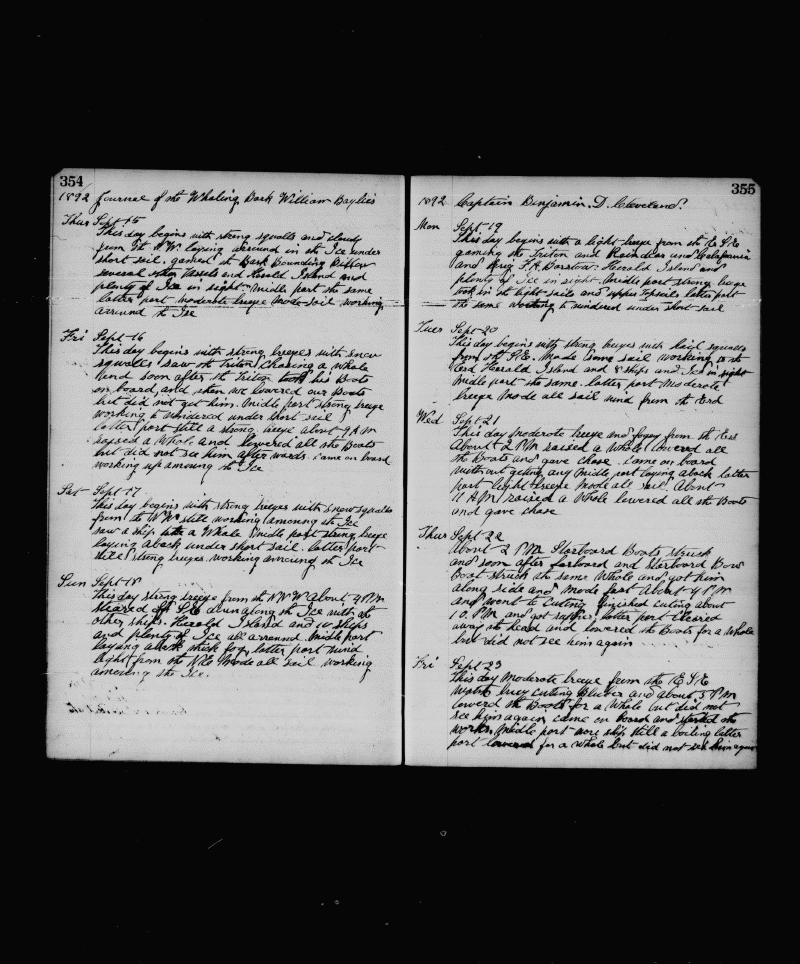 354
1892 Journal of the Whaling Bark William Baylies
Thur Sept 15
This day begins with strong squalls and cloudy
from St N.W. laying arround in the Ice under
short sail. gamed the Bark Bounding Billow
several other vessels and Herold Island and
plenty of Ice in sight. Middle part the same
latter part moderate breeze Made sail working
arround the Ice
Fri Sept 16
This day begins with strong breezes with snow
squalls saw the Triton Chasing a Whale
and soon after the Triton took his Boats
on board, and then we lowered our Boats
but did not get him. Middle part strong breeze
working to windered under short sail
latter part still a strong breeze about 9 A M
raised a Whale and lowered all the Boats
but did not see him after wards. came on board
working up amoung the Ice
Sat Sept 17
This day begins with strong breezes with snow squalls
from the N W still working amoung the Ice
saw a ship with a Whale Middle part strong breeze
laying aback under short sail. latter part
still strong breezes. working arround the Ice
Sun Sept 18
This day strong breeze from the N N W About 4 P M
steared off S E run along the Ice with the
other ships. Herold Island and 10 ships
and plenty of Ice all arround. Middle part
laying aback thick fog, latter part wind
light from the N E Made all sail working
amoung the Ice.
355
1892 Captain Benjamin. D. Cleveland.
Mon Sept 19
This day begins with a light breeze from the E S E
gaming the Triton and Raindeer and Calafornia
and Brig F. A. Barstow. Herald Island and
plenty of Ice in sight. Middle part strong breeze
took in the light sails and upper Topsails latter part
the same working to windered under short sail
Tues Sept 20
This day begins with strong breezes with Hail squalls
from the S E. Made some sail working to the
Erd Herald Island and 8 ships and Ice in sight
Middle part the same. latter part Moderate
breeze Made all sail wind from the Erd
Wed Sept 21
This day Moderate breeze and fogey from the Est
About 2 P M raised a Whale lowered all
the Boats and gave chase. came on board
without geting any Middle part laying aback latter
part light breeze Made all sail. About
11 A M raised a Whale lowered all the Boats
and gave chase
Thur Sept 22
About 2 P M Starboard Boats struck
and soon after larboard and Starboard Bow
Boat struck the same Whale and got him
along side and made fast About 4 P M
and went to Cuting finished cuting about
10. P M and got supper, latter part Cleared
away the head and lowered the Boats for a Whale
but did not see him again
Fri Sept 23
This day Moderate breeze from the E S E
Watch busy cuting Bluber and about 5 P M
lowerd the Boats for a Whale but did not
see him again came on board and started the
works. Middle part wore ship still a boiling latter
part lowered for a Whale but did not see him again